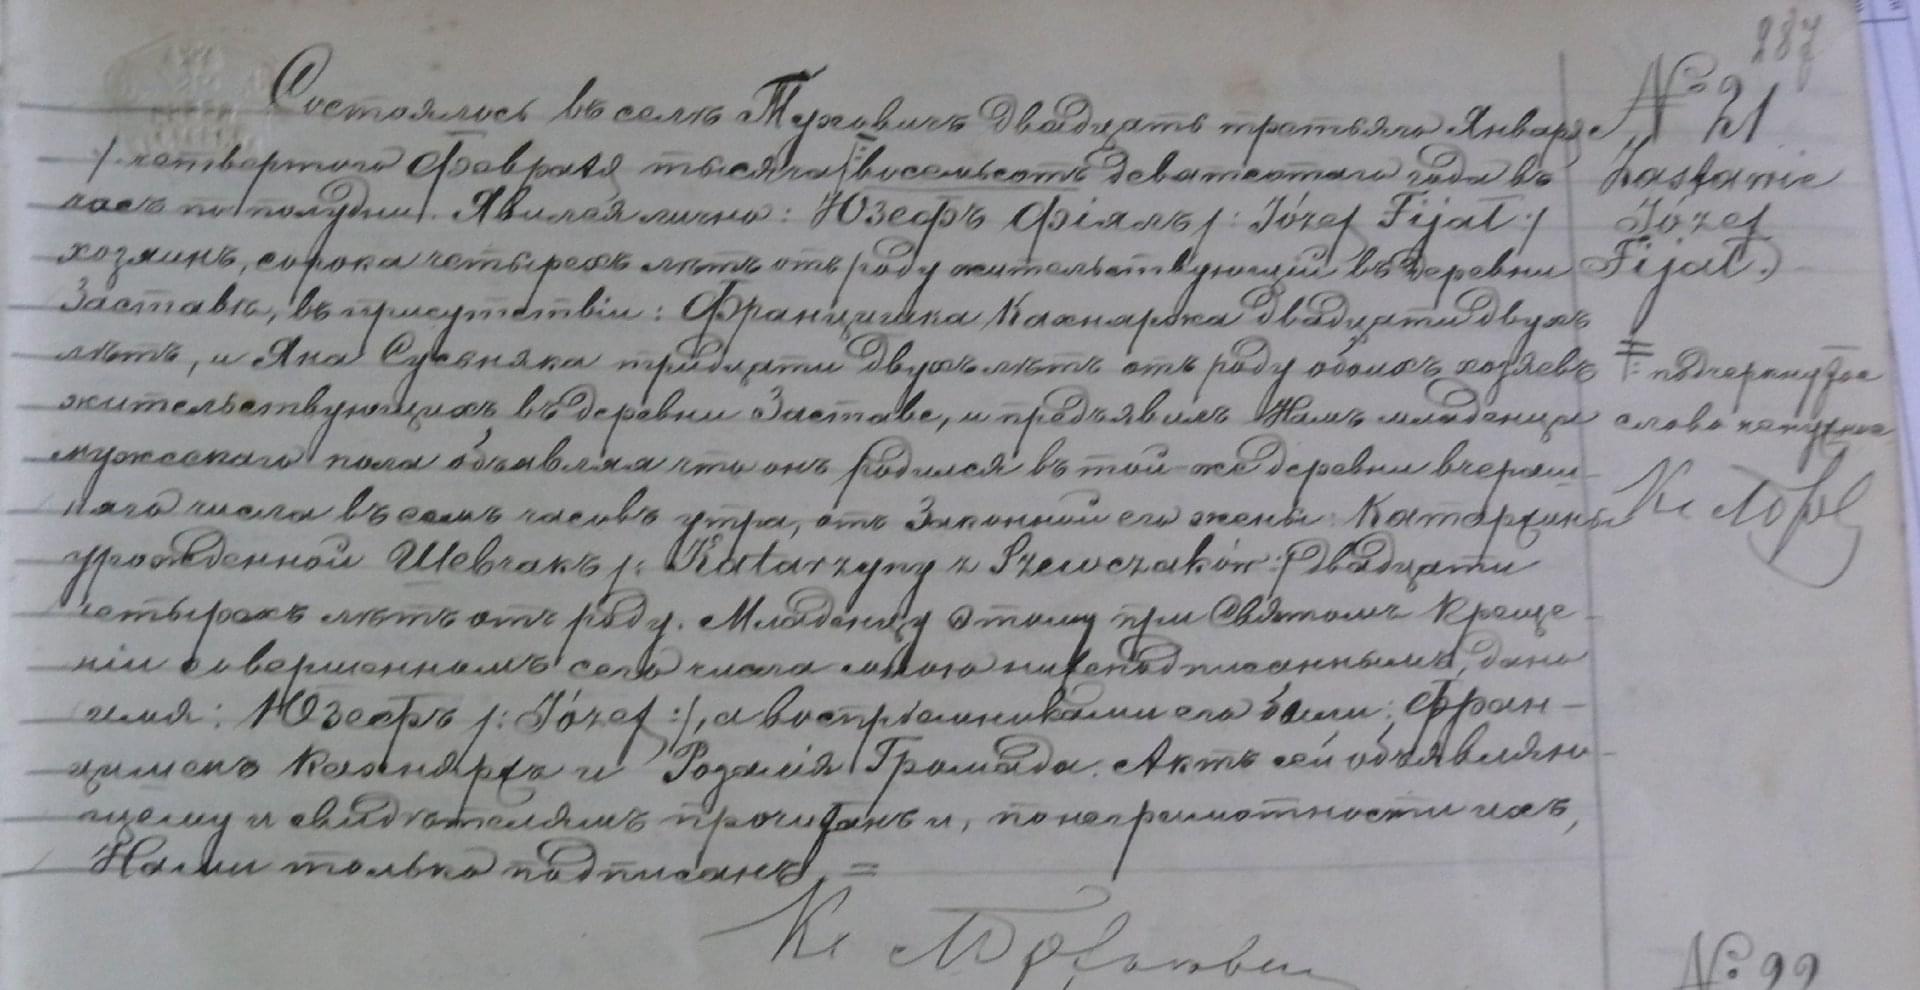 Состоялось въ селѣ Туховичъ двадцать третьяго Января
/четвертого Февраля тысяча восемьсотъ девятсотаго года въ
часъ по полудни. Явился лично: Юзефъ Фіялъ /: Józef Fijał :/
хозяинъ, сорока четырехъ лѣтъ отъ роду жительствующій въ деревни
Заставѣ, въ присутствіи: Францишка Кахняржа двадцати двухъ
лѣтъ, и Яна Сусвняка тридцати двухъ лѣтъ отъ роду обоихъ хозяевъ
жительствующихъ въ деревни Заставе, и предъявилъ Намъ младенца
мужескаго пола объявляя что онъ родился въ той-же деревни вчераш-
няго числа въ семъ часовъ утра, отъ Законной его жены: Катаржины
урожденной Шевчакъ /: Katarzyny z Szewczaków :/ двадцати
четырехъ лѣтъ отъ роду. Младенцу этому при Святомъ Креще-
ніи совершенномъ сего числа мною нижеподписаннымъ, дано
имя: Юзефъ /: Józef :/, а воспріемниками его были: Фран-
цишекъ Кахняржъ и Розалія Громада. Актъ сей объявляю-
щему и свидѣтелямъ прочитанъ и, по неграмотности ихъ,
Нами только подписанъ. =
Кс
№ 21
Zastawie
Józef
Fijał.
подчеркнутое
слово ненужное
Кс
№ 22